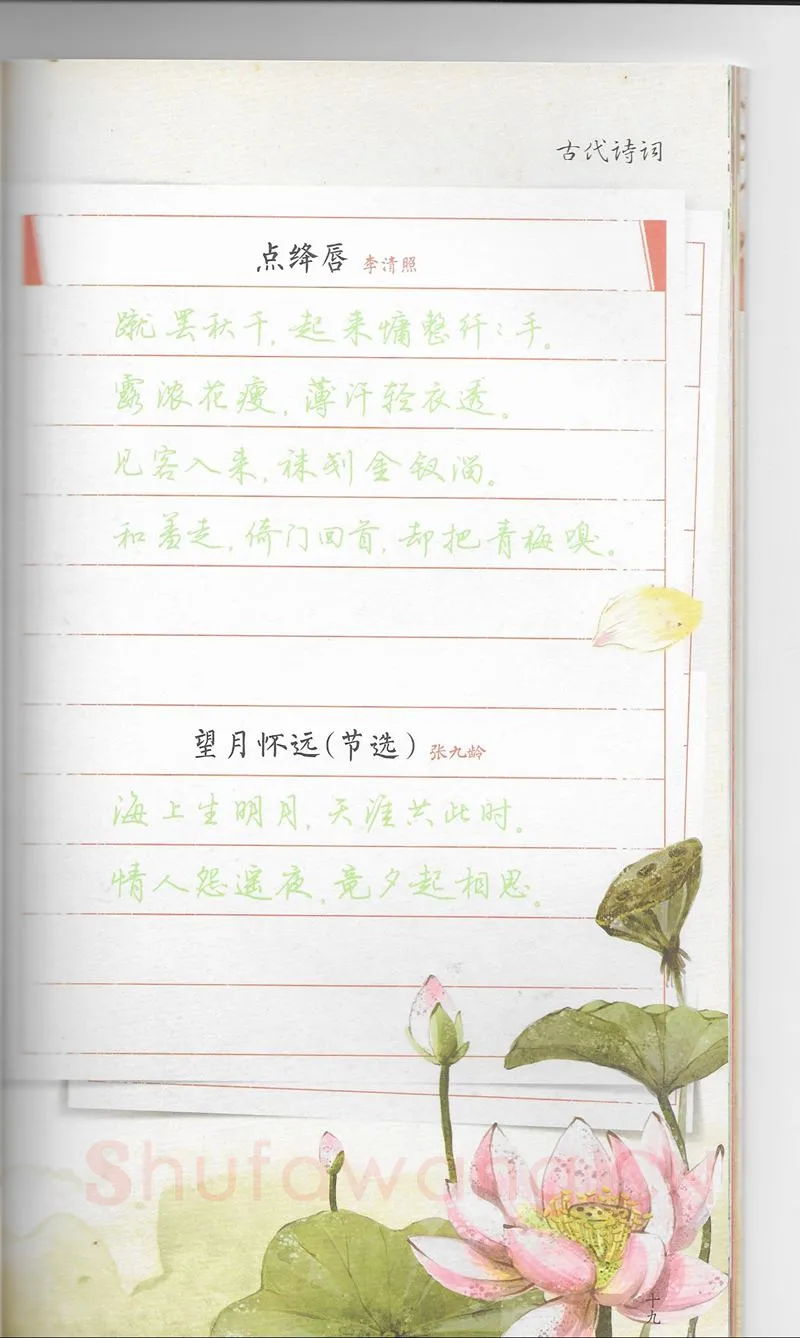 古代诗词
点绛唇 李清照
蹴罢秋千,起来慵整纤:手。
露浓花瘦,薄汗轻衣透。
见客入来,袜刬金钗溜。
和羞走,倚门回首,却把青梅嗅。
望月怀远(节选) 张九龄
海上生明月,天涯共此时。
情人怨遥夜,竟夕起相思。
Shufawang
十九